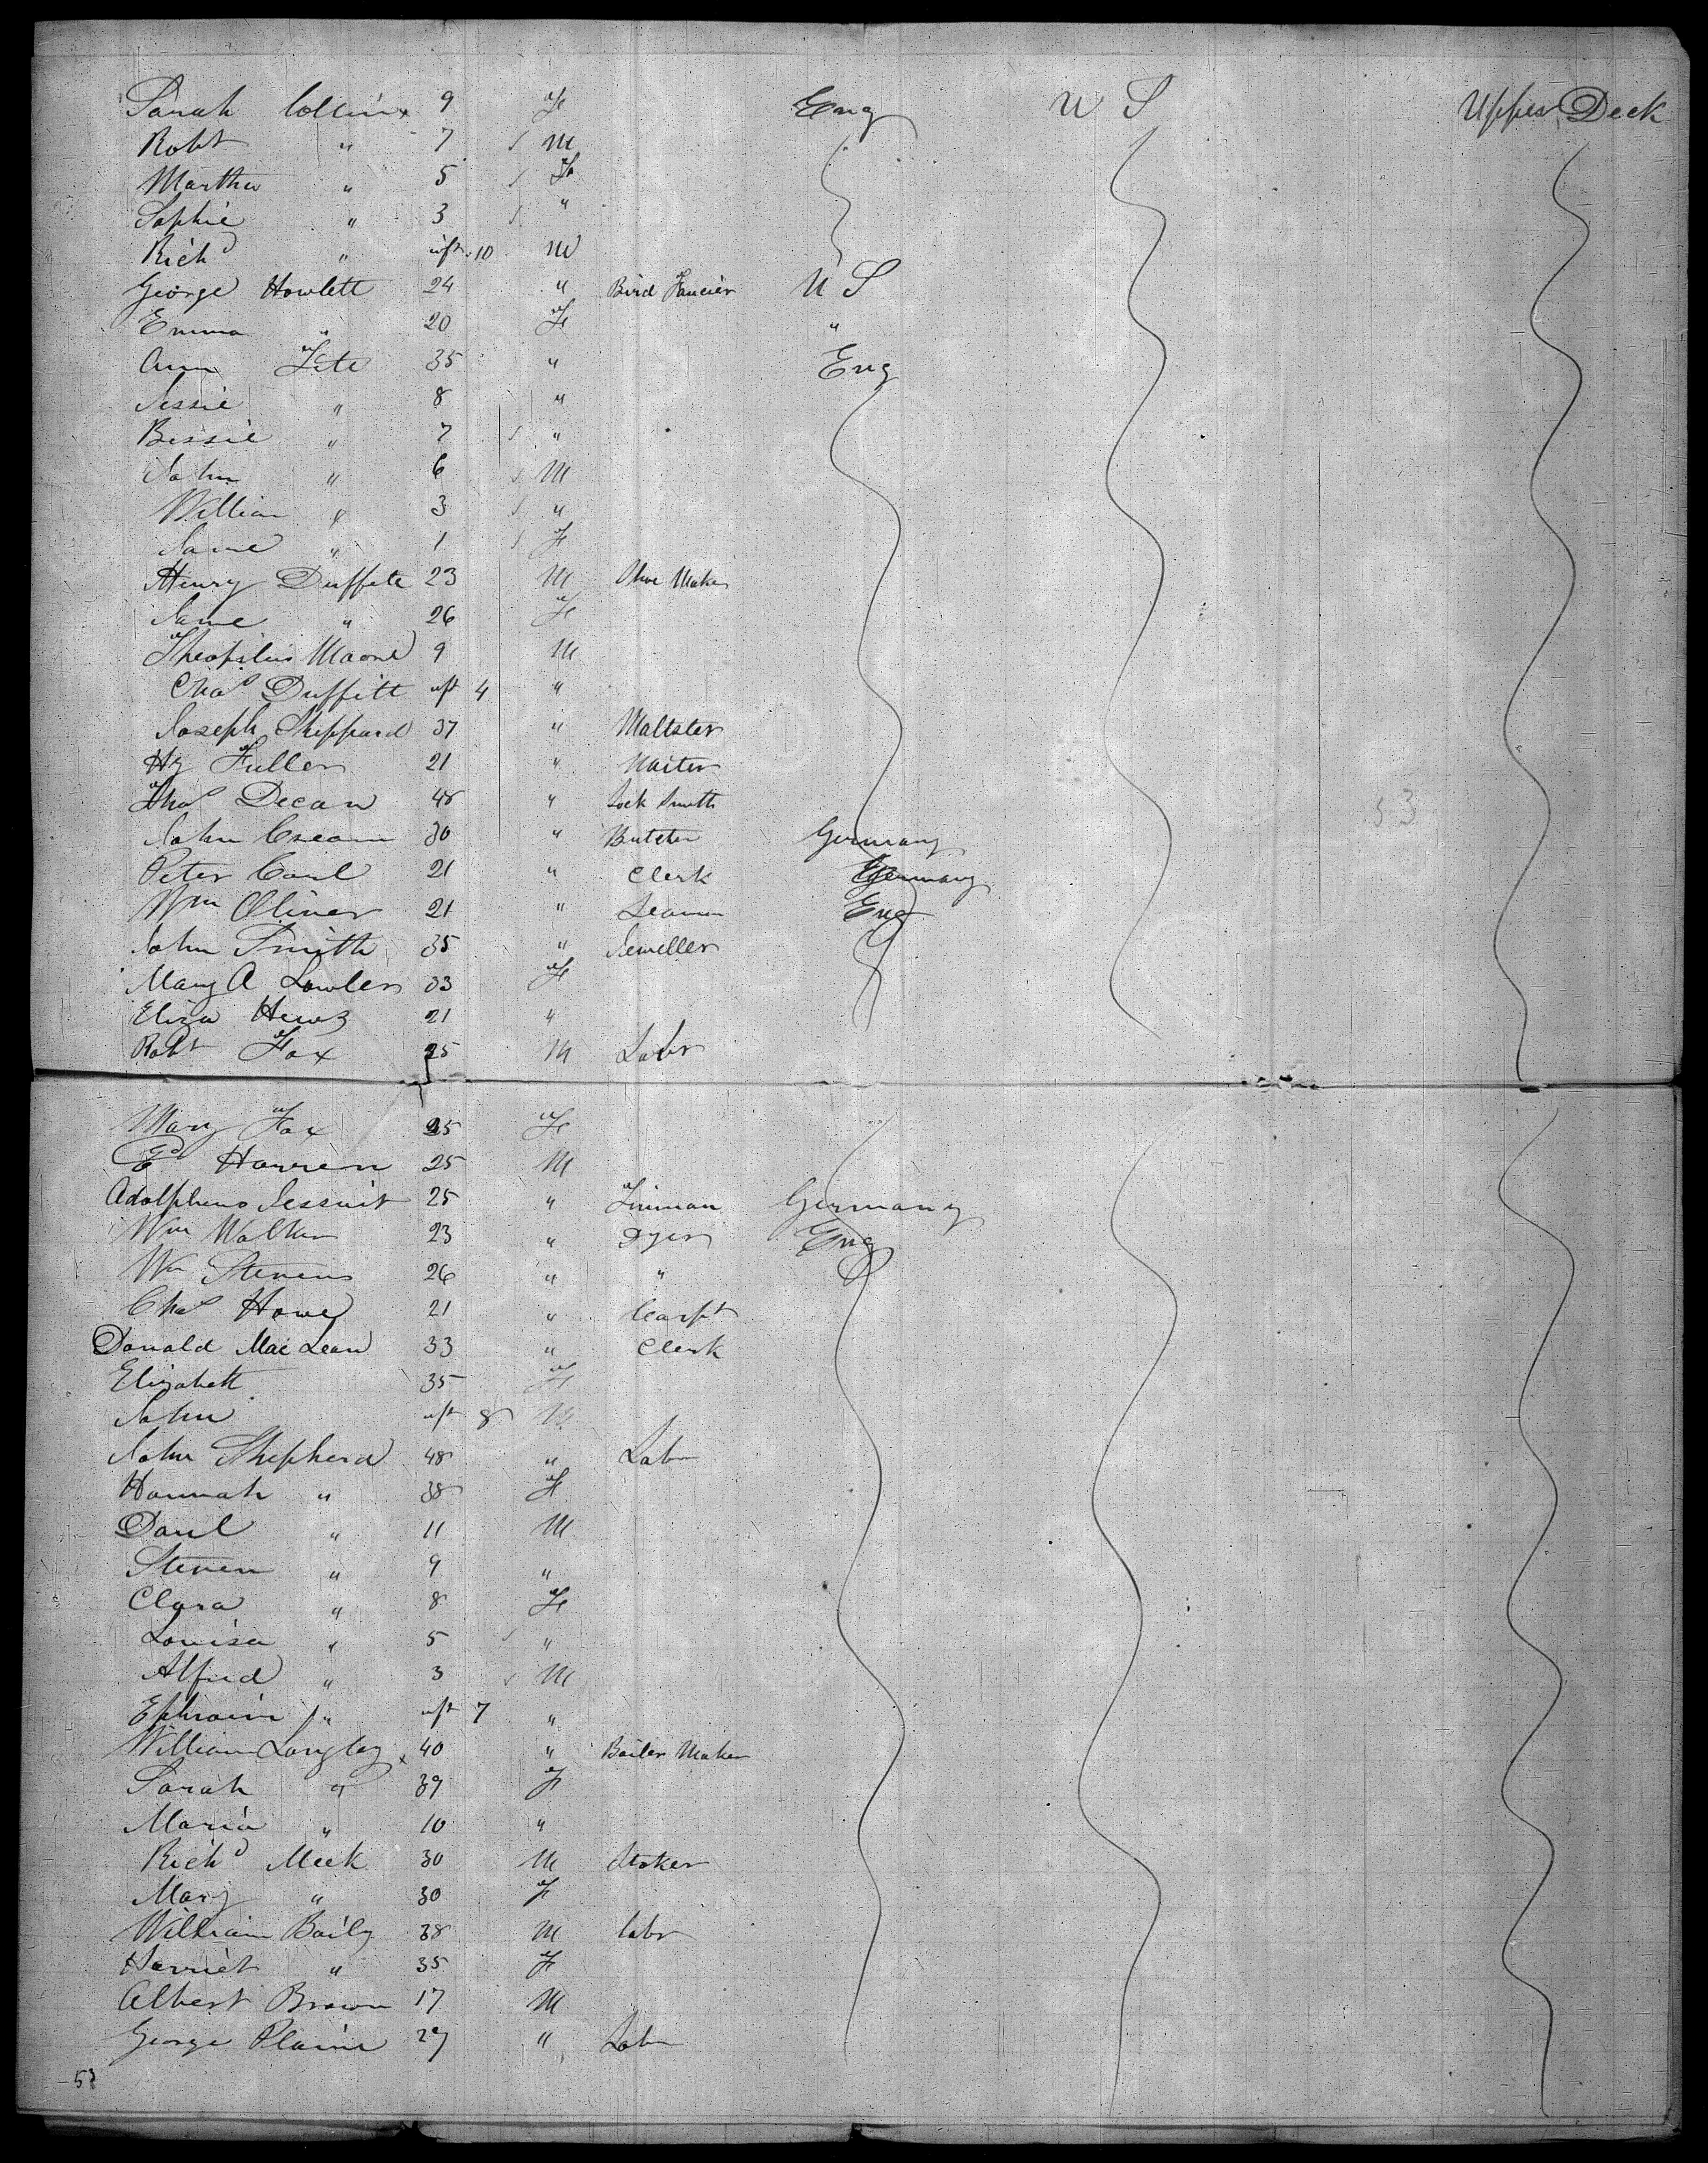 Sarah Collins 9 F Eng U S Upper Deck
Robt " 7 M
Martha " 5 F
Sophie " 3 "
Richd " inft 10 M
George Howlett 24 " Bird Fancier U S
Emma " 20 F "
Ann Tite 35 " Eng
Jessie " 8 "
Bessie " 7 "
John " 6 M
William " 3 "
Jane " 1 F
Henry Duffett 23 M Shoe Maker
Jane " 26 F
Theopilus Maone 9 M
Chas Duffitt inft 4 "
Joseph Sheppard 37 " Maltster
Hy Fuller 21 " Waiter
Thos Decan 48 " Lock Smith
John Cream 30 " Butcher Germany
Peter Carl 21 " Clerk Germany
Wm Oliver 21 " Seaman Eng
John Smith 35 " Jeweller
Mary A Lawler 33 F
Eliza 21 "
Robt Fox 25 M Labr
53
Mary Fox 25 F
Ed Harren 25 M
Adolpheus 25 " Germany
Wm Walker 23 " Dyer Eng
Wm Stevens 26 " "
Chas Howe 21 " Carpt
Donald Mac Lean 33 " Clerk
Elizabett 35 F
John inft 8 M
John Shepherd 48 " Labr
Hannah " 38 F
Paul " 11 M
Steven " 9 "
Clara " 8 F
Louisa " 5 "
Alfred " 3 M
Ephraim " inft 7 "
William Langley 40 " Boiler Maker
Sarah " 39 F
Maria " 10 "
Richd Meek 30 M Stoker
Mary " 30 F
William Baily 38 M labr
Harriet " 35 F
Albert Brown 17 M
George Plaine 29 " Labr
53